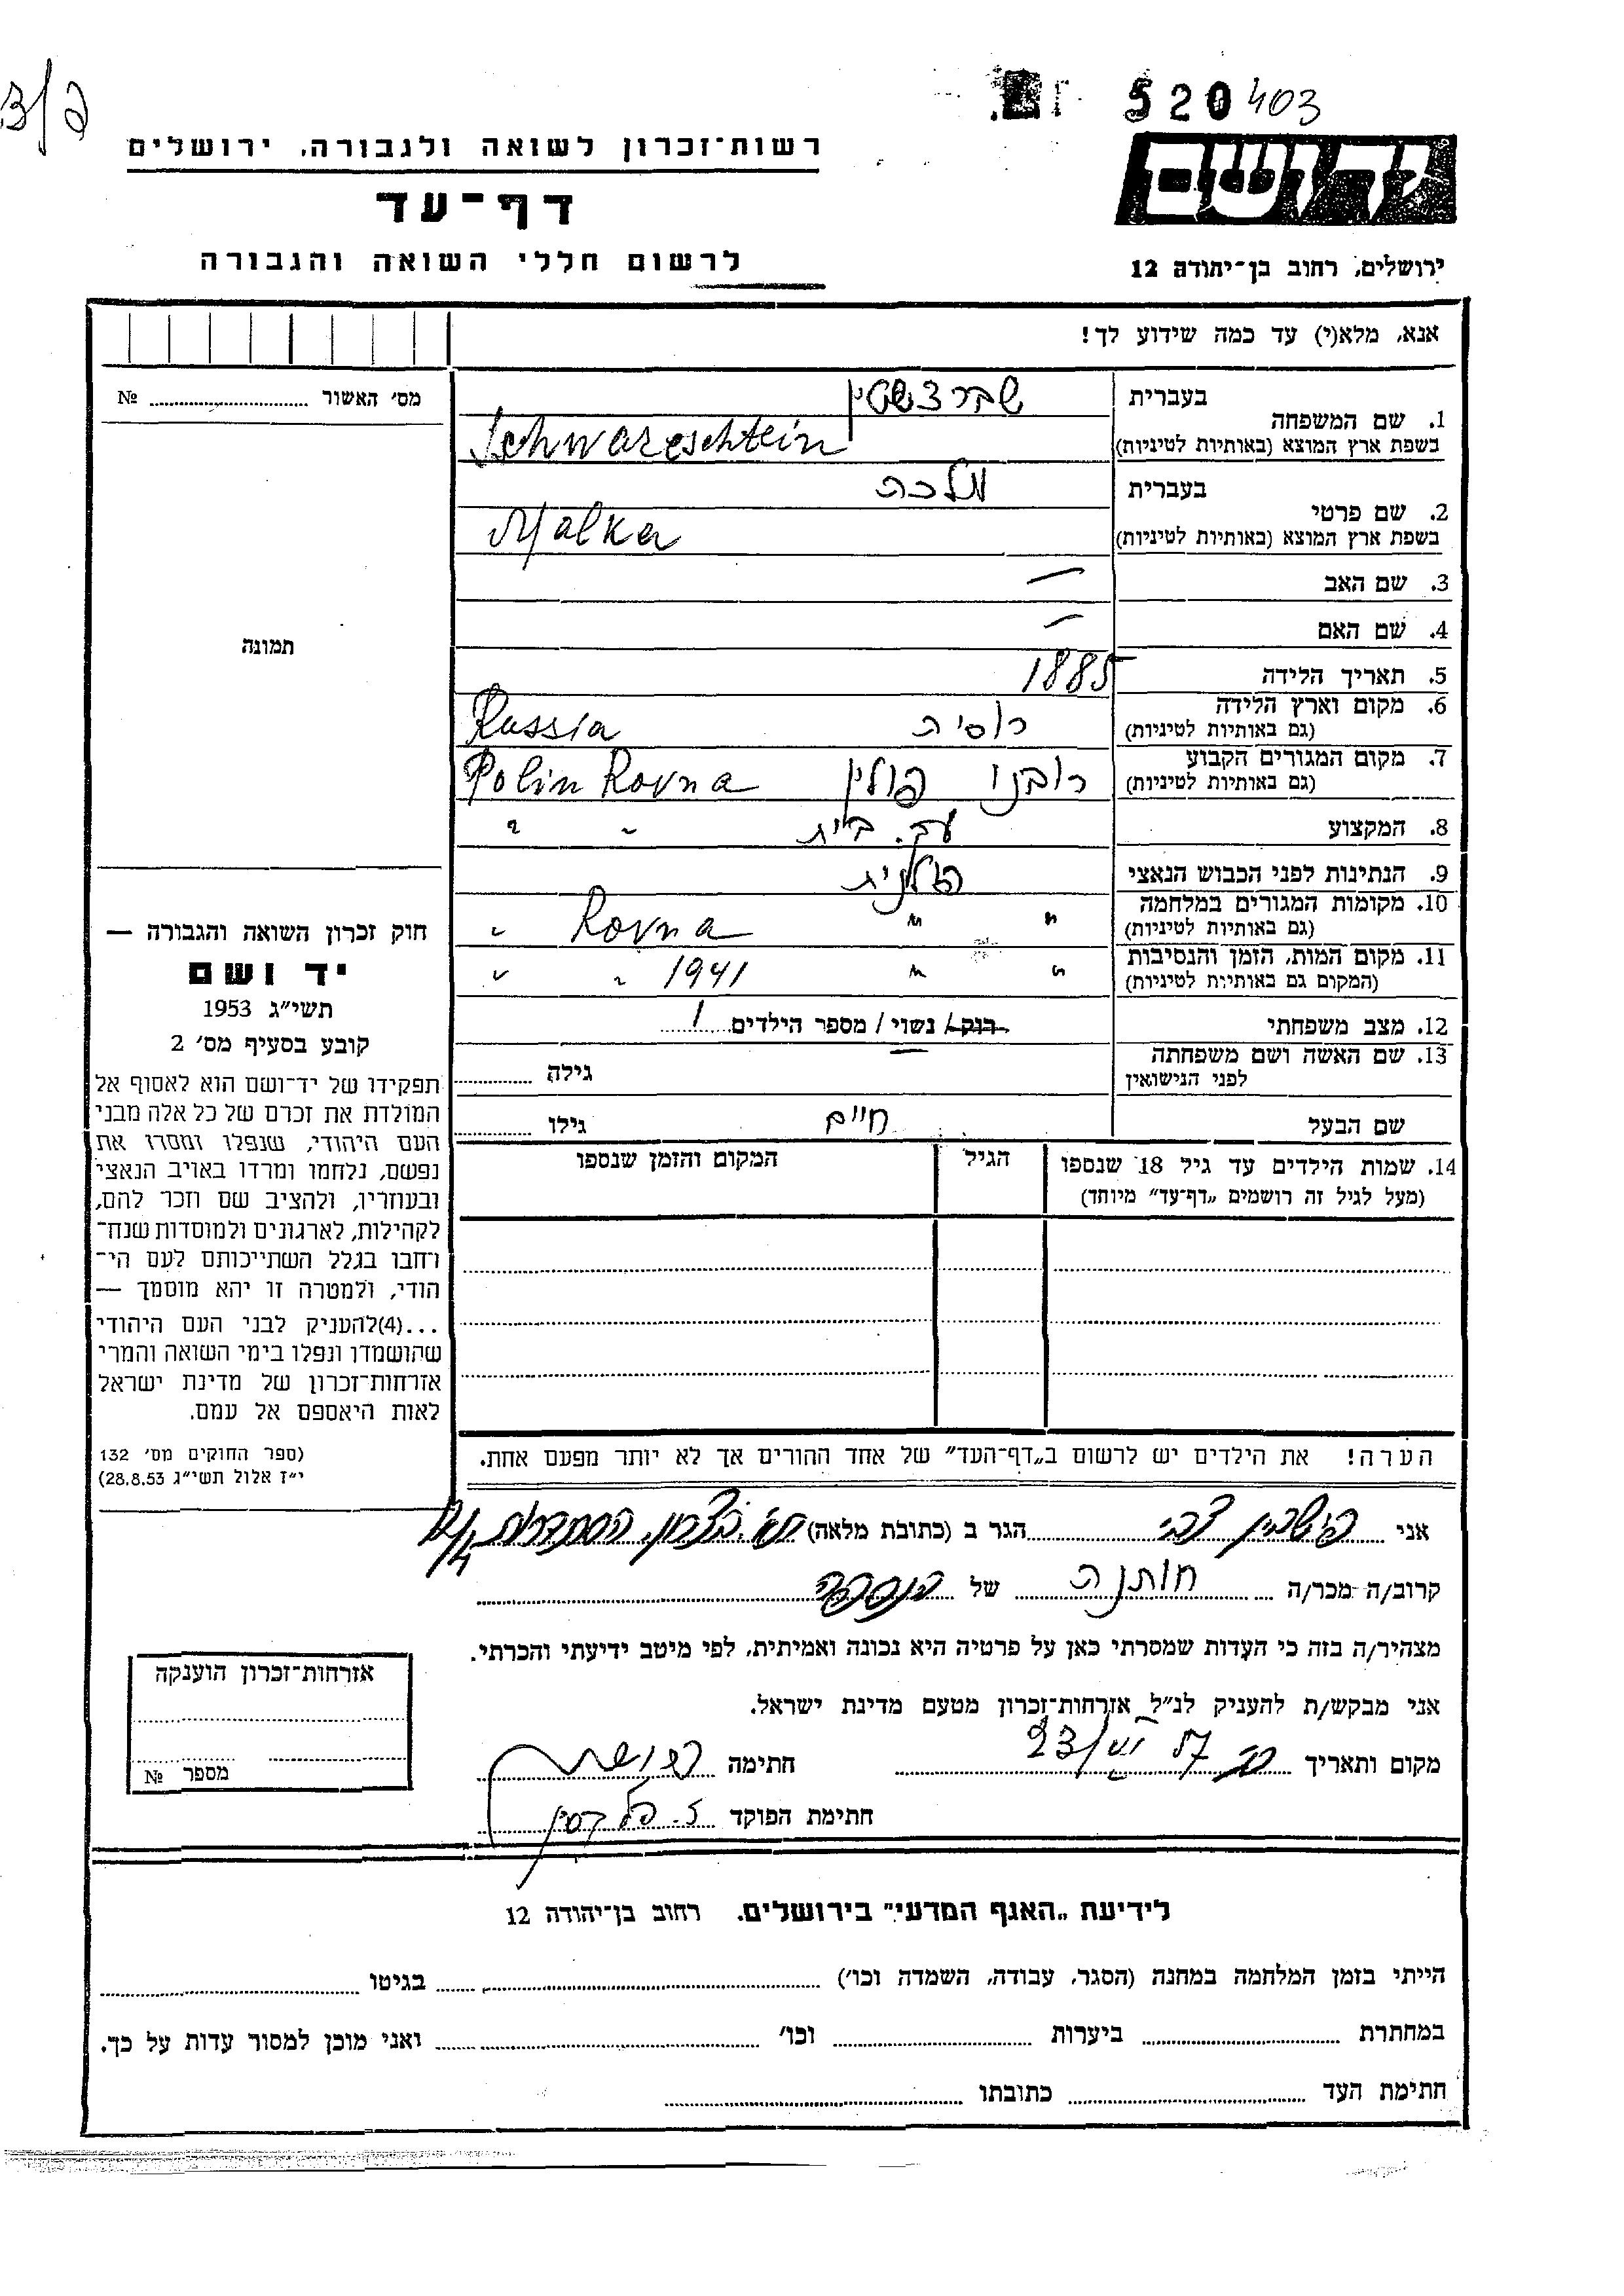 520403
רשות־זכרון לשואה ולגבורה, ירושלים
יד ושם
דף־עד
לרשום חללי השואה והגבורה
ירושלים, רחוב בן־יהודה 12
אנא, מלא(י) עד כמה שידוע לך!
מס׳ האשור № ..........
1. שם המשפחה
בעברית שברצשטיין
בשפת ארץ המוצא (באותיות לטיניות) Schwarzschtein
2. שם פרטי
בעברית מלכה
בשפת ארץ המוצא (באותיות לטיניות) Malka
3. שם האב —
4. שם האם —
5. תאריך הלידה 1885
6. מקום וארץ הלידה
(גם באותיות לטיניות) רוסיה Russia
7. מקום המגורים הקבוע
(גם באותיות לטיניות) רובנו פולין Polin Rovna
8. המקצוע עק. בית " "
9. הנתינות לפני הכבוש הנאצי פולנית
10. מקומות המגורים במלחמה
(גם באותיות לטיניות) " " Rovna "
11. מקום המות, הזמן והנסיבות
(המקום גם באותיות לטיניות) " " 1941 " "
12. מצב משפחתי רוק/ נשוי / מספר הילדים 1
13. שם האשה ושם משפחתה
לפני הנישואין גילה ..........
שם הבעל חיים גילו ..........
14. שמות הילדים עד גיל 18 שנספו
(מעל לגיל זה רושמים „דף־עד״ מיוחד)
הגיל
המקום והזמן שנספו
תמונה
חוק זכרון השואה והגבורה —
יד ושם
תשי״ג 1953
קובע בסעיף מס׳ 2
תפקידו של יד־ושם הוא לאסוף אל
המולדת את זכרם של כל אלה מבני
העם היהודי, שנפלו ומסרו את
נפשם, נלחמו ומרדו באויב הנאצי
ובעוזריו, ולהציב שם וזכר להם,
לקהילות, לארגונים ולמוסדות שנח־
רחבו בגלל השתייכותם לעם הי־
הודי, ולמטרה זו יהא מוסמך —
...(4)להעניק לבני העם היהודי
שהושמדו ונפלו בימי השואה והמרי
אזרחות־זכרון של מדינת ישראל
לאות היאספם אל עמם.
(ספר החוקים מס׳ 132
י״ז אלול תשי״ג 28.8.53)
הערה! את הילדים יש לרשום ב„דף־העד״ של אחד ההורים אך לא יותר מפעם אחת.
אני צבי הגר ב (כתובת מלאה)
קרוב/ה מכר/ה חותנה של הנספה
מצהיר/ה בזה כי העדות שמסרתי כאן על פרטיה היא נכונה ואמיתית, לפי מיטב ידיעתי והכרתי.
אני מבקש/ת להעניק לנ״ל אזרחות־זכרון מטעם מדינת ישראל.
מקום ותאריך חתימה
חתימת הפוקד
אזרחות־זכרון הוענקה
מספר №
לידיעת „האגף המדעי״ בירושלים. רחוב בן־יהודה 12
הייתי בזמן המלחמה במחנה (הסגר, עבודה, השמדה וכו׳) .......... בגיטו ..........
במחתרת .......... ביערות .......... וכו׳ .......... ואני מוכן למסור עדות על כך.
חתימת העד .......... כתובתו ..........